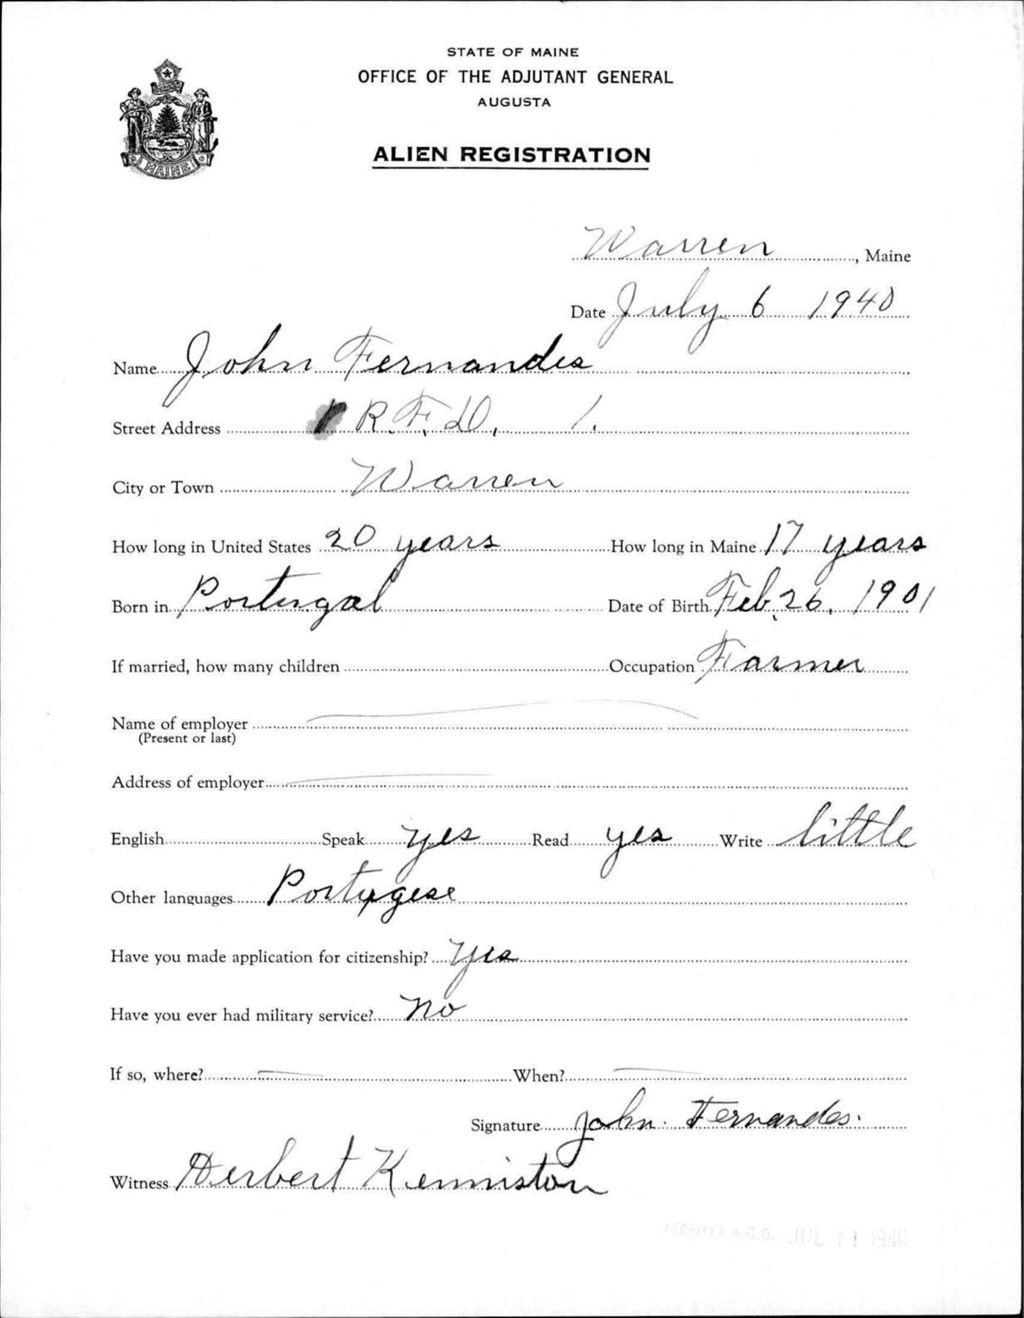 STATE OF MAINE
OFFICE OF THE ADJUTANT GENERAL
AUGUSTA
ALIEN REGISTRATION
MAINE
Warren, Maine
Date July 6 1940
Name John Fernandes
Street Address R.F.D. 1.
City or Town Warren
How long in United States 20 years How long in Maine 17 years
Born in Portugal Date of Birth Feb. 26, 1901
If married, how many children Occupation Farmer
Name of employer
(Present or last)
Address of employer
English Speak yes Read yes Write little
Other languages Portugese
Have you made application for citizenship? Yes
Have you ever had military service? No
If so, where? When?
Signature John Fernandes.
Witness Herbert Kenniston
RECEIVED A.G.O. JUL 11 1940